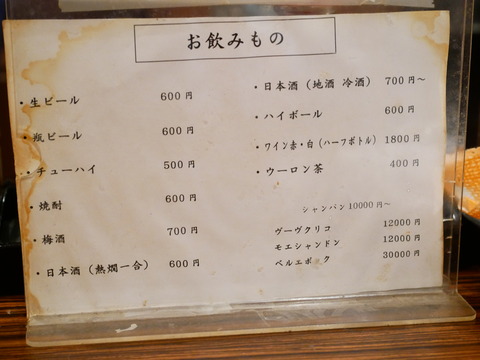 お飲みもの
・生ビール 600円
・瓶ビール 600円
・チューハイ 500円
・焼酎 600円
・梅酒 700円
・日本酒（熱燗一合） 600円
・日本酒（地酒 冷酒） 700円～
・ハイボール 600円
・ワイン赤・白（ハーフボトル） 1800円
・ウーロン茶 400円
シャンパン 10000円～
ヴーヴクリコ 12000円
モエシャンドン 12000円
ベルエポック 30000円